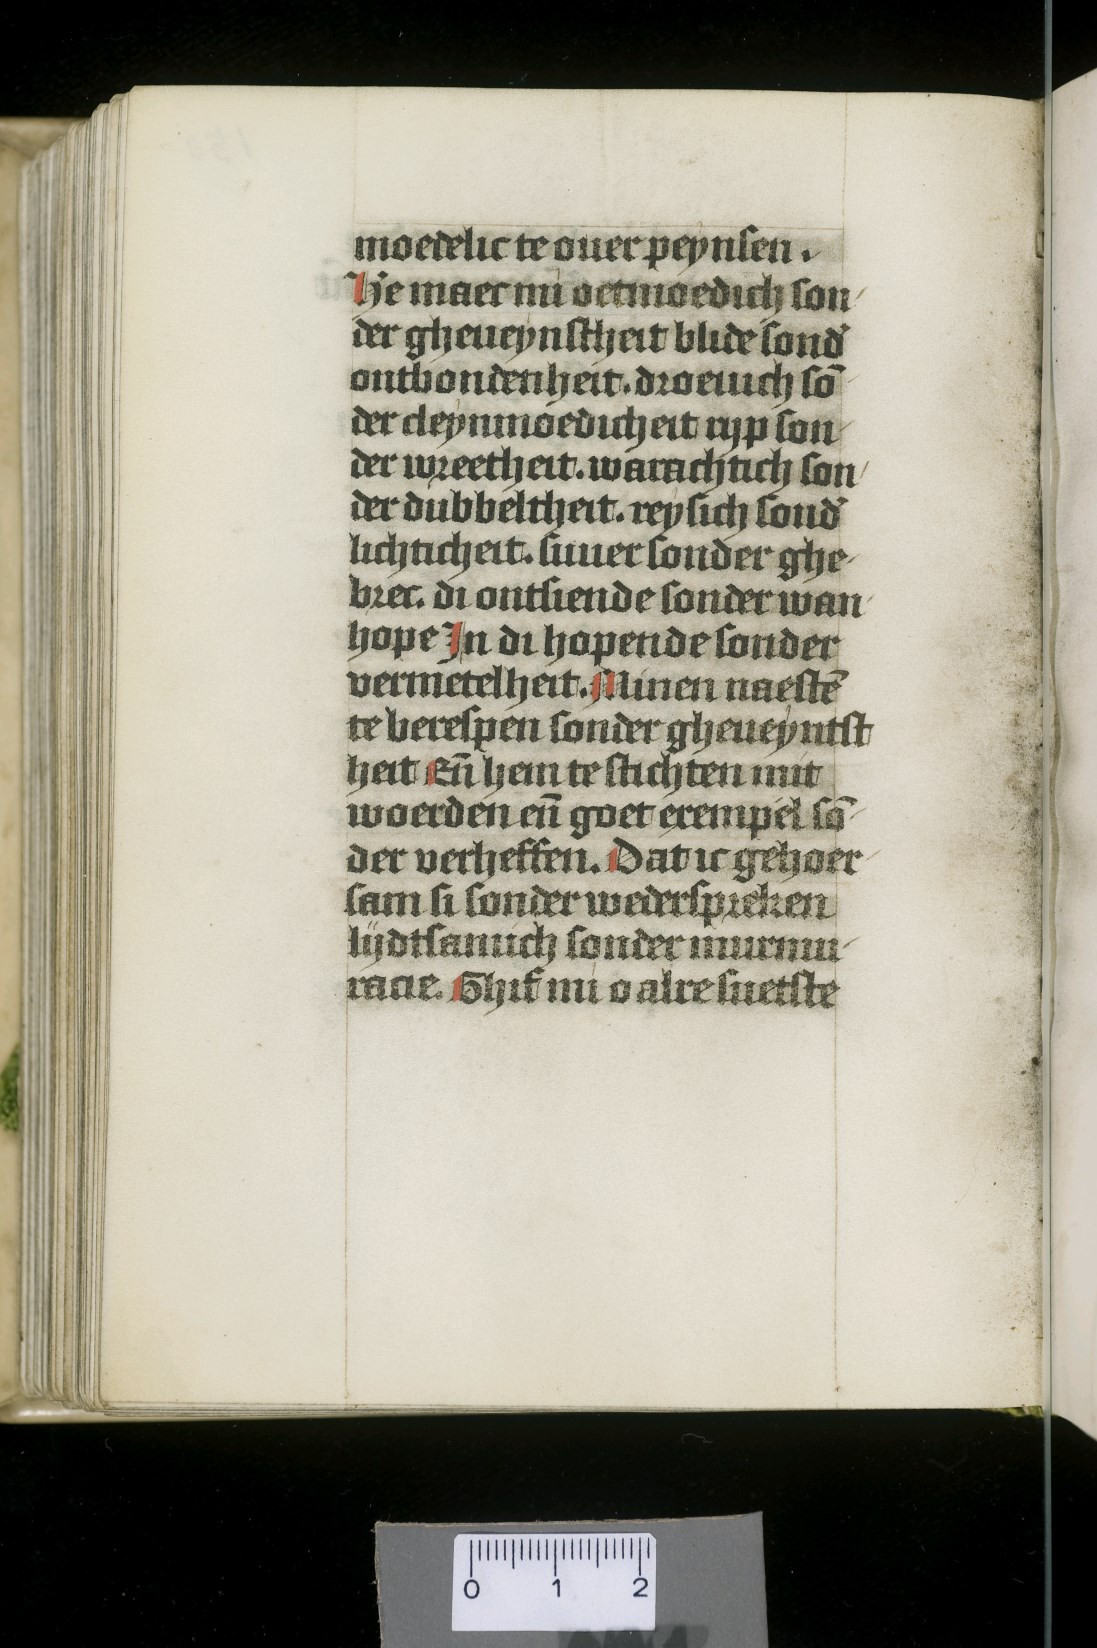 moedelic te ouer peynsen.
He maer mi oetmoedich son
der gheueynstheit blide sond᾽
ontbondenheit. droeuich sō
der cleynmoedicheit rijp son
der wreetheit. warachtich son
der dubbeltheit. reysich sond᾽
lichticheit. suuer sonder ghe
brec. di ontsiende sonder wan
hope In di hopende sonder
vermetelheit. Minen naestē
te berespen sonder gheueyntst
heit Eñ hem te stichten mit
woerden eñ goet exempel sō
der verheffen. Dat ic gehoer
sam si sonder wederspreken
lijdtsamich sonder murmu
racie. Ghif mi o alre suetste
0 1 2